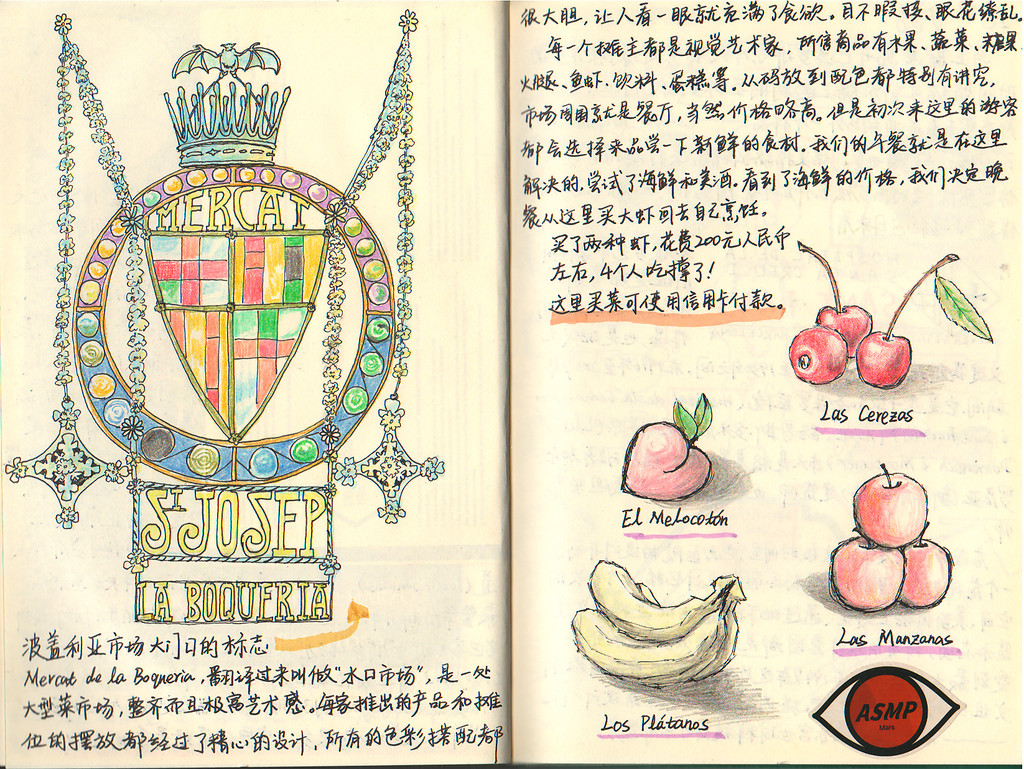 MERCAT
ST JOSEP
LA BOQUERIA
波盖利亚市场大门口的标志
Mercat de la Boqueria，翻译过来叫做“水口市场”，是一处
大型菜市场，整齐而且极富艺术感。每家推出的产品和摊
位的摆放都经过了精心的设计，所有的色彩搭配都
很大胆，让人看一眼就充满了食欲。目不暇接、眼花缭乱。
每一个摊主都是视觉艺术家，所售商品有水果、蔬菜、糖果
火腿、鱼虾、饮料、蛋糕等。从码放到配色都特别有讲究，
市场周围就是餐厅，当然价格略高。但是初次来这里的游客
都会选择来品尝一下新鲜的食材。我们的午餐就是在这里
解决的，尝试了海鲜和美酒。看到了海鲜的价格，我们决定晚
餐从这里买大虾回去自己烹饪。
买了两种虾，花费200元人民币
左右，4个人吃撑了！
这里买菜可使用信用卡付款。
Las Cerezas
El Melocotón
Las Manzanas
Los Plátanos
ASMP
Mark